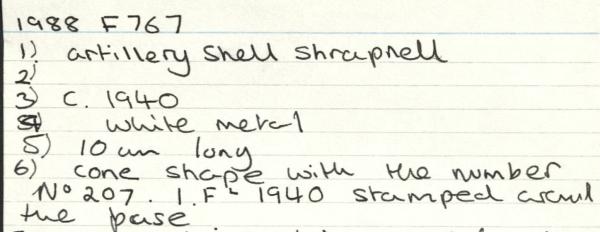 1988 F 767
1) artillery shell shrapnell
2)
3) C. 1940
4) white metal
5) 10 cm long
6) cone shape with the number
No 207. I.F L 1940 stamped around
the base